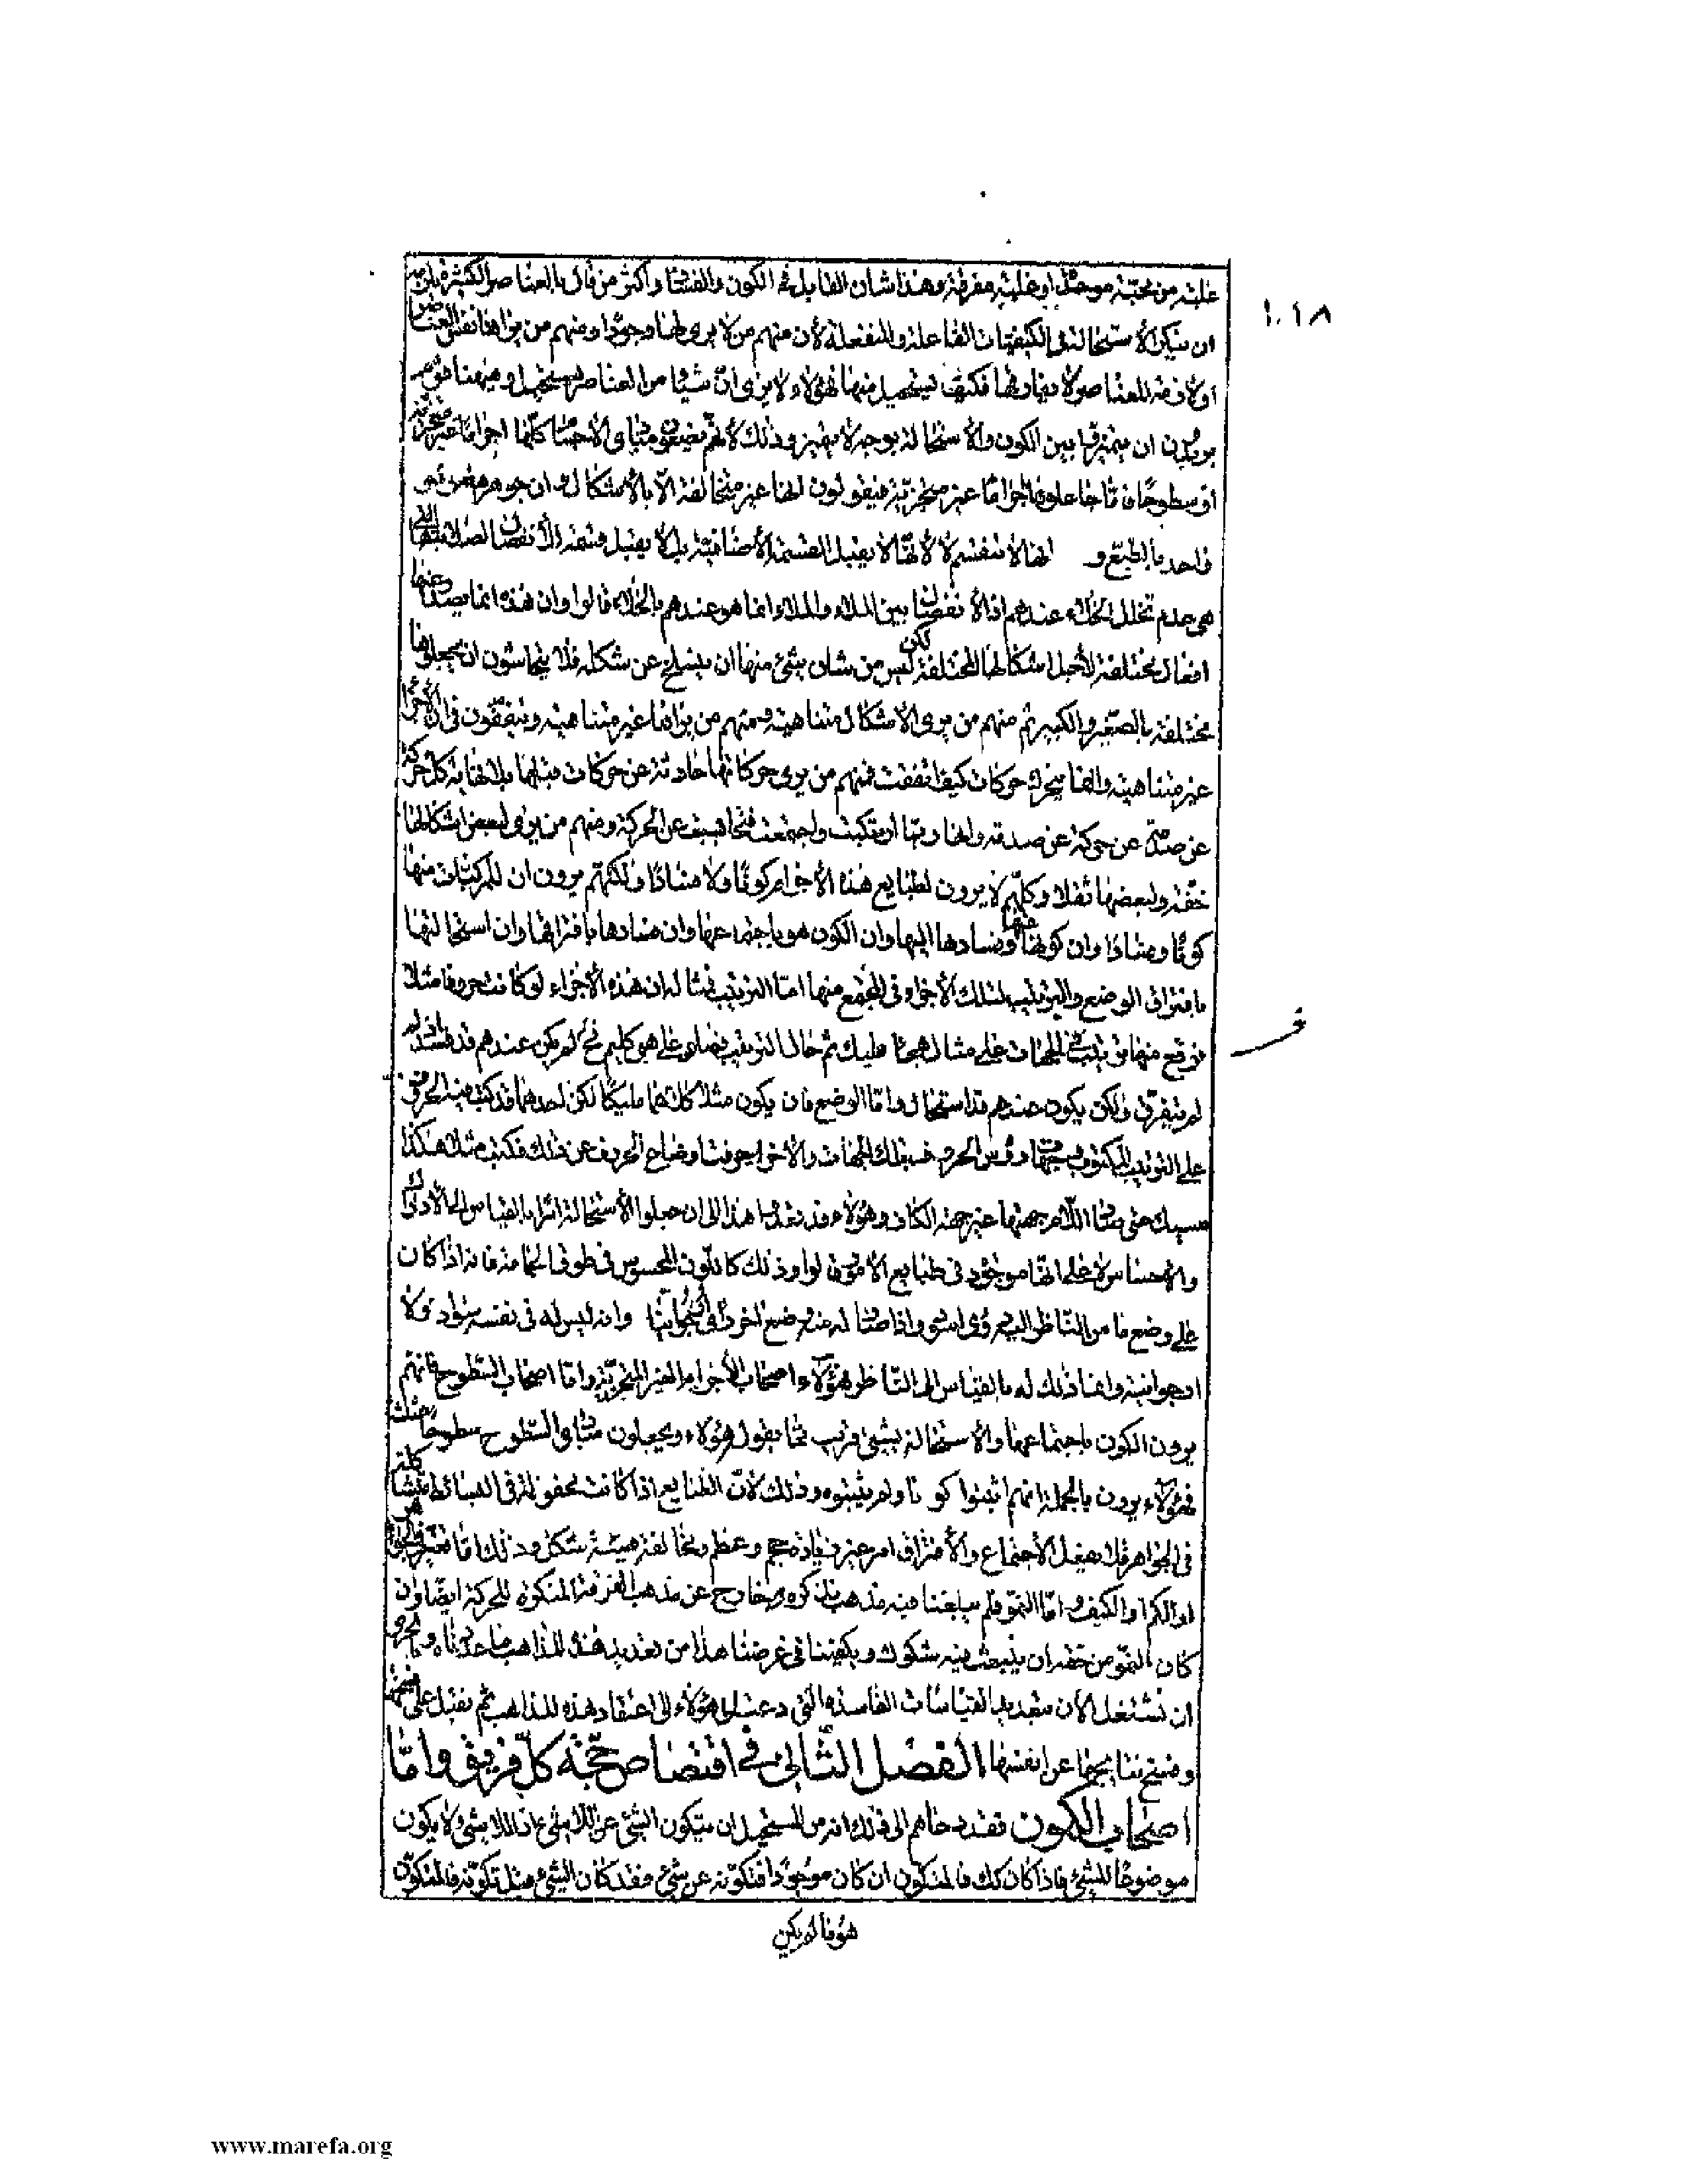 ١٠١٨
غلبته من محبته موحدة او غلبته مفرقة وهذا شان القايل في الكون والفساد واكثر من قال بالعناصر الكثيرة يلزمه
ان ينكر الاستحالة في الكيفيات الفاعلة والمنفعلة لأن منهم من لا يرى لها وجودا ومنهم من يراها نفس العناصر
او لازمة للعناصر لا يفارقها فكيف يستحيل منها فهؤلاء لا يرى ان شيئا من العناصر يستحيل ومنهم
يريدون ان يميزوا بين الكون والاستحالة بوجه لا يميز وذلك لأنهم يضعون مبادى الأجسام كلها اجراما غير متجزية
او سطوحا فاما جاعلوها اجراما غير متجزية فيقولون انها غير متخالفة الا بالأشكال وان جوهرها
واحد بالطبع و انها لا تنقسم لا لأنها لا يقبل القسمة الأضافية بل لا يقبل
هي عدم تخلل الخلاء عندهم اذ الأنفصال بين الملاء والملاء انما هو عندهم بالخلاء قالوا وان هذه انما يصدر عنها
افعال مختلفة لأجل اشكالها المختلفة لكن ليس من شان شئ منها ان ينسلخ عن شكله فلا يتحاشون ان يجعلوها
مختلفة بالصغير والكبير ثم منهم من يرى الأشكال متناهية ومنهم من يراها غير متناهية ويتفقون فى ان الأجزاء
غير متناهية وانها يتحرك حركات كيف اتفقت فمنهم من يرى حركاتها حادثة عن حركات قبلها بلا نهاية كل حركة
عن صدمة عن حركة عن صدمة وانها ربما ارتكبت واجتمعت عن الحركة ومنهم من يرى لبعض اشكالها
خفة ولبعضها ثقلا وكلهم لا يرون لطبايع هذه الأجرام كونا ولا فسادا ولكنهم يرون ان للمركبات منها
كونا وفسادا وان كونها منها وفسادها اليها وان الكون هو باجتماعها وان فسادها بافتراقها وان استحالتها
بافتراق الوضع والترتيب لتلك الأجزاء فى المجتمع منها اما الترتيب فمثاله ان هذه الأجزاء لو كانت حروفا مثلا
فوقع منها ترتيب في الجهات على مثال هجاء مليك ثم حال الترتيب فصار على هجاء كليم فح لم يكن عندهم قد فسد اذ
لم يتفرق ولكن يكون عندهم قد استحال واما الوضع فان يكون مثلا كلاهما مليكا لكن احدهما قد كتب فيه الحروف
على الترتيب المكتوب وجهات رؤس الحروف تلك الجهات والآخر حرفت اوضاع الحروف عن ذلك فكتب مثلا هكذا
حتى صار اللام جهتها غير جهة الكاف وهؤلاء قد تعدوا هذا الى ان جعلوا الأستحالة امرا بالقياس الى الأدراك
والاحساس لا على انها موجود فى طبايع الأمور قالوا وذلك كاللون المحسوس فى طوق الحمامة فانه اذا كان
على وضع ما من الناظر اليه رؤى اسود واذا صار له منه وضع اخر رؤى ارجوانيا وانه ليس له فى نفسه سواد ولا
ارجوانية وانما ذلك له بالقياس الى الناظر فهؤلاء اصحاب الأجرام الغير المتجزية واما اصحاب السطوح فانهم
يرون الكون باجتماعها والأستحالة بشئ قريب مما يقول هؤلاء ويجعلون مبادى السطوح سطوحا مثلثة
فهؤلاء يرون بالجملة انهم اثبتوا كونا ولم يثبتوه وذلك لأن الطبايع اذا كانت محفوظة فى البسائط كلها متشابهة
فى الجواهر فلا يفعل الأجتماع والأفتراق امرا غير زيادة حجم وعظم ومخالفة هيئة شكل وذلك اما تغير
او الكم او الكيف واما النمو فلم يبلغنا فيه مذهب نذكره خارج عن مذهب الفرقة المنكرة للحركة ايضا وان
كان النمو من حقه ان ينبعث فيه شكوك ويكفينا فى غرضنا هذا من تعديد هذه المذاهب ما عددناه والحرى
ان نشتغل الأن بتعديد القياسات الفاسدة التى دعت هؤلاء الى اعتقاد هذه المذاهب ثم نقبل على
ونفتح نتايجها عن انفسها الفصل الثالث في اقتصاص حجة كل فريق واما
اصحاب الكون فقد دعاهم الى ذلك انه من المستحيل ان يتكون الشئ عن اللاشئ فان اللاشئ لا يكون
موضوعا للشئ فاذا كان كك فالمتكون ان كان موجودا فتكونه عن شئ فقد كان الشئ قبل تكونه فالمتكون
هو ما لم يكن
www.marefa.org